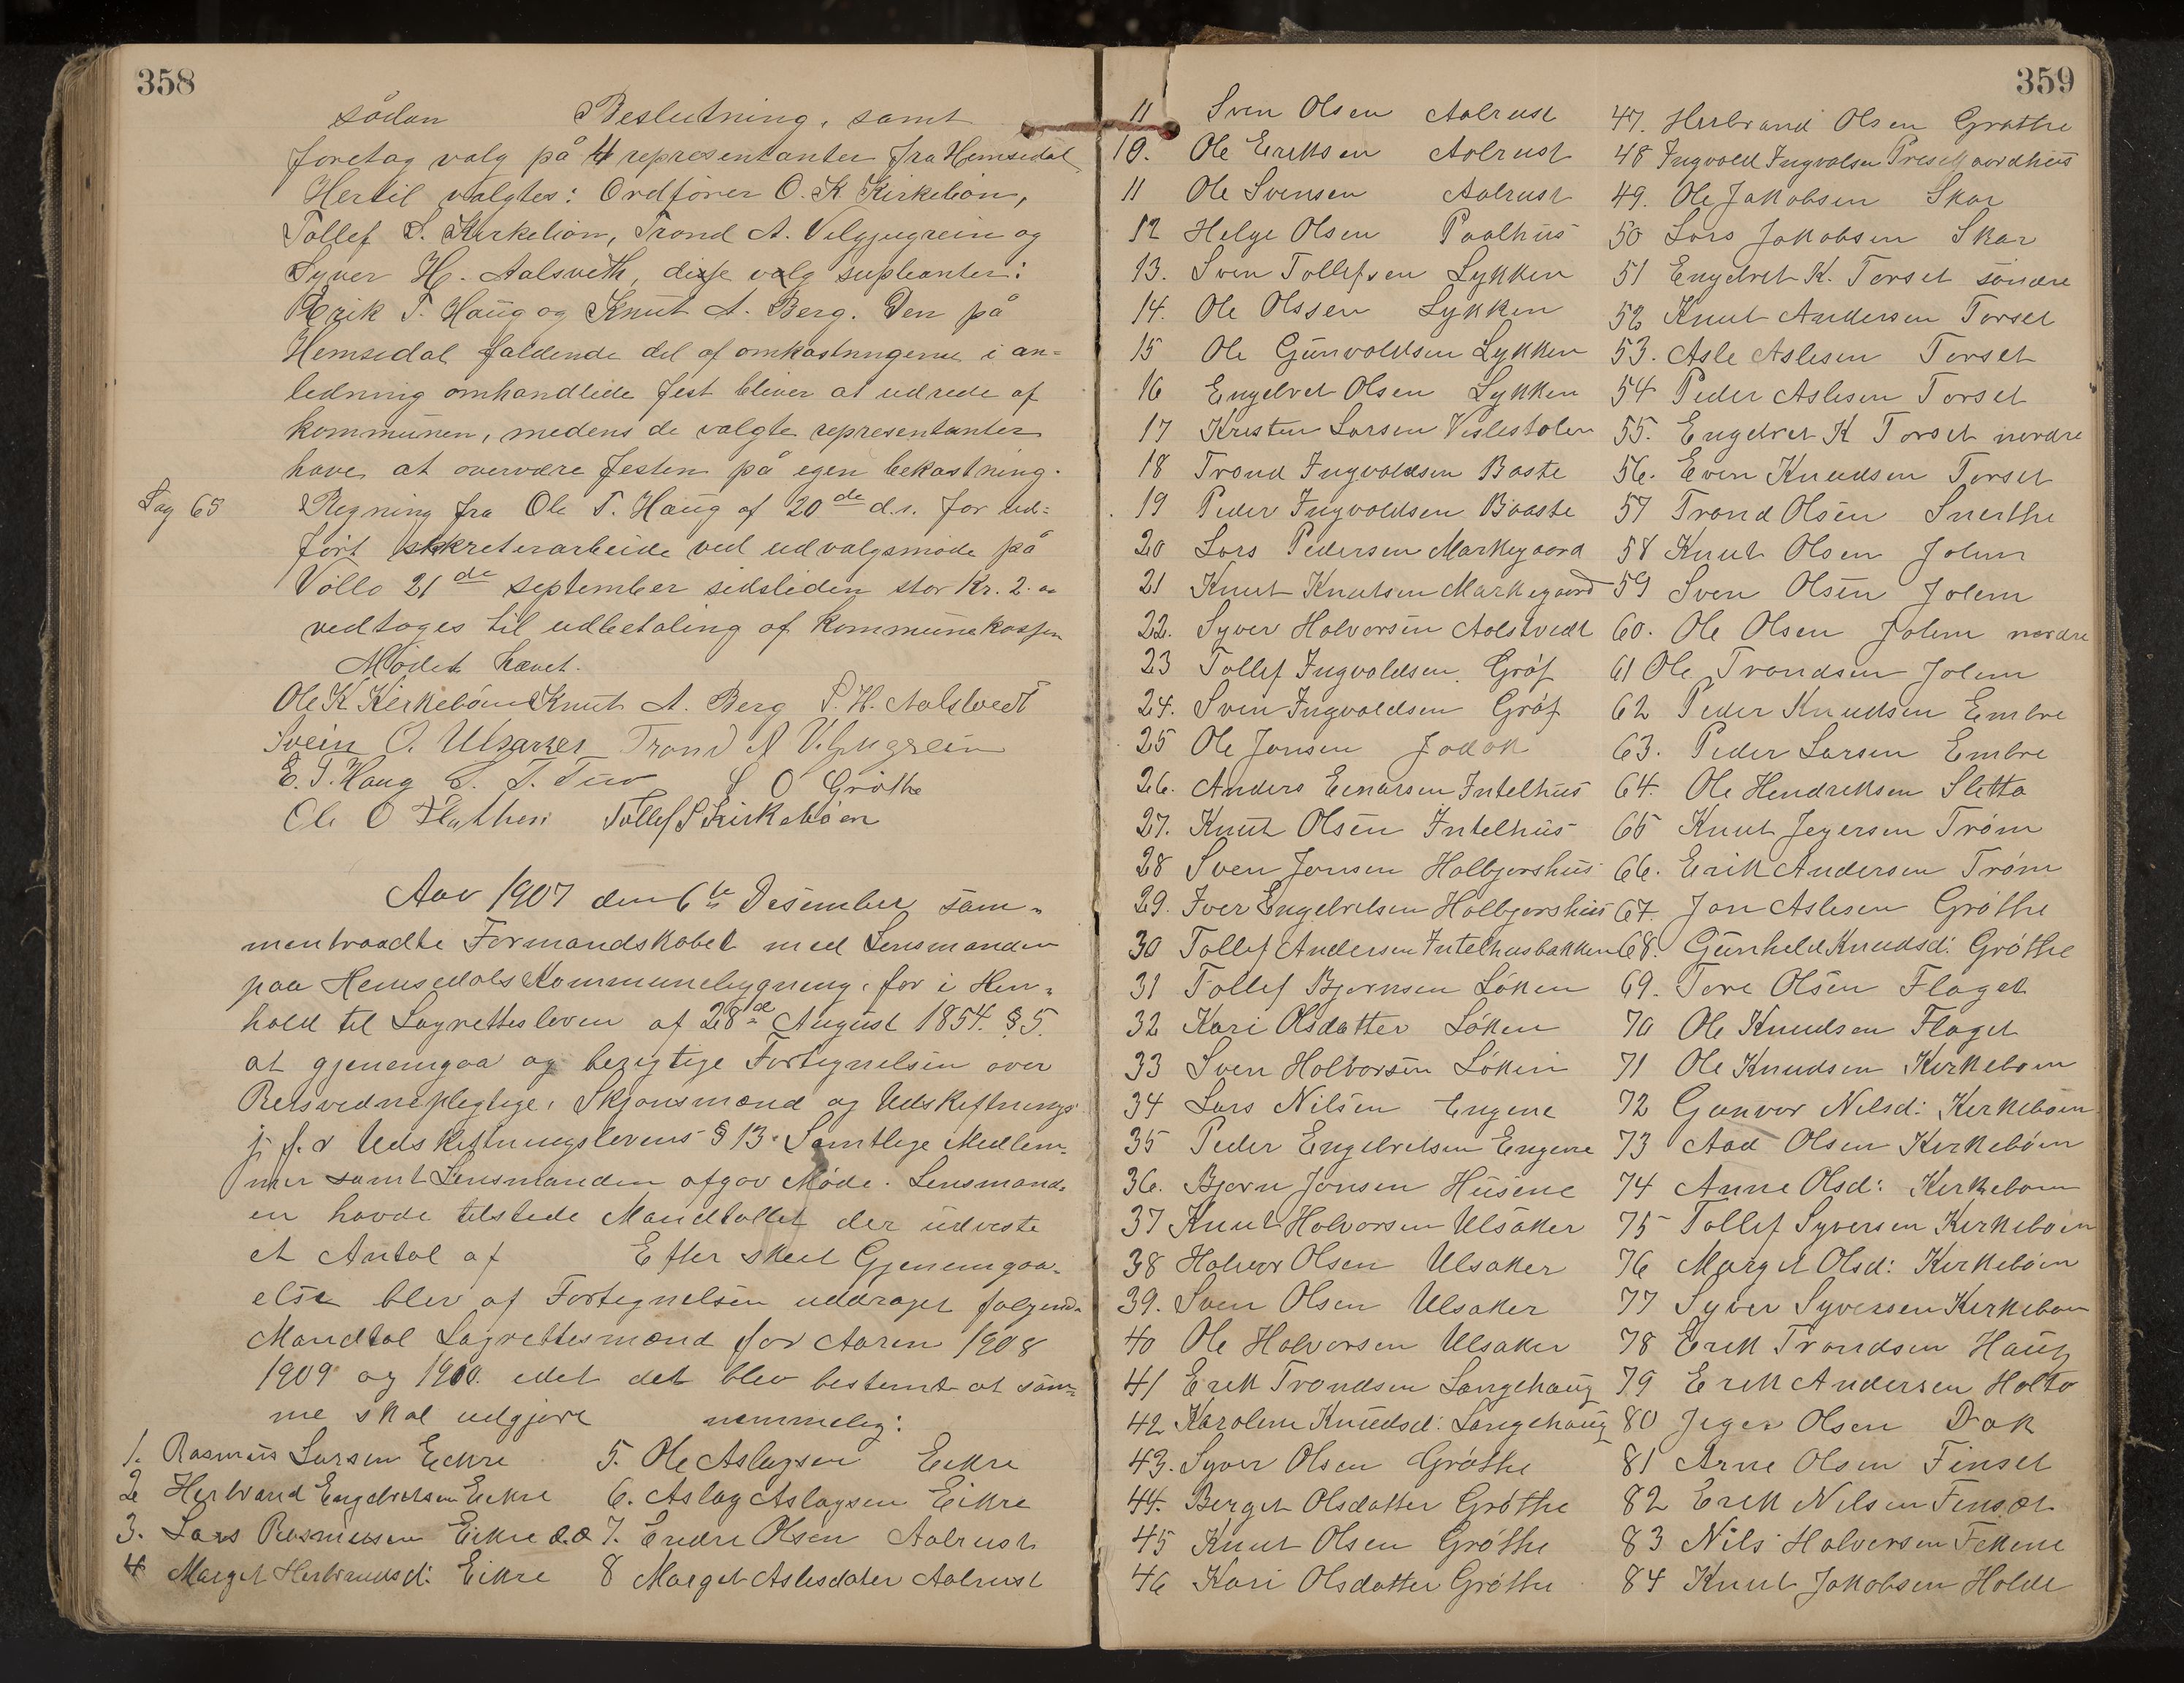 358
sådan Beslutning, samt
foretag valg på 4 representanter fra Hemsedal
Hertil valgtes: Ordfører O. K. Kirkebøn,
Tollef S. Kirkebøn, Trond A. Vilgjugrein og
Syver H. Aalsveth, disse valg supleanter:
Erik T. Haug og Knut A. Berg. Den på
Hemsedal faldende del af omkastningerne i an=
ledning omhandlede fest bliver at udrede af
kommunen, medens de valgte representanter
have at overvære festen på egen bekostning.
Sag 65 Regning fra Ole T. Haug af 20de d.s. for ud=
ført sekreterarbeide ved udvalgsmøde på
Vøllo 21de september sidstleden stor Kr. 2.
vedtoges til udbetaling af kommunekassen
Mødet hævet.
Ole K Kirkebøen Knut A. Berg S. H. Aalstvedt
Svein O. Ulsaker Trond A Vilgjugrein
E. T. Haug S. T. Tuv S O Grøthe
Ole O Flathen Tollef S Kirkebøen
Aar 1907 den 6te Desember sam=
mentraadte Formandskabet med Lensmanden
paa Hemsedals Kommunebygning, for i Hen=
hold til Lagrettesloven af 28de August 1854. § 5.
at gjenemgaa og bezigtige Fortegnelsen over
Retsvidnepligtige, Skjønsmænd og Udskiftnings
jf. Udskiftningslovens § 13. Samtlige Medlem=
mer samt Lensmanden afgav Møde. Lensmand=
en havde tilstede Mandtallet der udviste
et Antal af Efter skeet Gjenemgaa=
else blev af Fortegnelsen uddraget følgende
Mandtal Lagrettesmænd for Aaren 1908
1909 og 1910. idet det blev bestemt at sam=
me skal udgjøre nemmelig:
1. Rasmus Larsen Eikre 5. Ole Aslagsen Eikre
2 Herbrand Engebretsen Eikre 6. Aslag Aslagsen Eikre
3. Lars Rasmussen Eikre 7. Endre Olsen Aalrust
4 Margit Herbrandsd: Eikre 8 Margit Aslesdater Aalrust
359
11 Sven Olsen Aalrust
10. Ole Eriksen Aalrust
11 Ole Svensen Aalrust
12 Helge Olsen Paalhus
13. Sven Tollefsen Lykken
14. Ole Olssen Lykken
15 Ole Gunvoldsen Lykken
16 Engebret Olsen Lykken
17 Kristen Larsen Veslestolen
18 Trond Ingvoldsen Baste
19 Peder Ingvoldsen Baaste
20 Lars Pedersen Markegaard
21 Knut Knutsen Markegaard
22. Syver Halvorsen Aalstvedt
23 Tollef Ingvoldsen Grøf
24. Sven Ingvoldsen Grøf
25 Ole Jonsen Jodok
26. Anders Einarsen Intelhus
27. Knut Olsen Intelhus
28 Sven Jonsen Holbjørshus
29. Iver Engebretsen Holbjørshus
30 Tollef Andersen Intelhusbakken
31 Tollef Bjørnsen Løken
32 Kari Olsdatter Løken
33 Sven Halvorsen Løken
34 Lars Nilsen Engene
35 Peder Engebretsen Engene
36. Bjørn Jonsen Husene
37 Knut Halvorsen Ulsaker
38 Halvor Olsen Ulsaker
39. Sven Olsen Ulsaker
40 Ole Halvorsen Ulsaker
41 Erik Trondsen Langehaug
42 Karoline Knudsd: Langehaug
43. Syver Olsen Grøthe
44. Berget Olsdatter Grøthe
45 Knut Olsen Grøthe
46 Kari Olsdatter Grøthe
47. Herbrand Olsen Grøthe
48 Ingvold Ingvolsen Prestgaardhus
49. Ole Jakobsen Skar
50 Lars Jakobsen Skar
51 Engebret K. Torset søndre
52 Knut Andersen Torset
53. Asle Aslesen Torset
54 Peder Aslesen Torset
55. Engebret K Torset nordre
56. Even Knudsen Torset
57 Trond Olsen Snerthe
58 Knut Olsen Jolem
59 Sven Olsen Jolem
60. Ole Olsen Jolem nordre
61 Ole Trondsen Jolem
62 Peder Knudsen Embre
63. Peder Larsen Embre
64. Ole Hendriksen Sletto
65 Knut Jegersen Trøm
66. Erik Andersen Trøm
67. Jon Aslesen Grøthe
68. Gunhild Knudsd: Grøthe
69. Tore Olsen Flaget
70 Ole Knudsen Flaget
71 Ole Knudsen Kirkebøen
72 Gunvor Nilsd: Kirkebøen
73 Aad Olsen Kirkebøen
74 Anne Olsd: Kirkebøen
75 Tollef Syversen Kirkebøen
76 Margit Olsd: Kirkebøen
77 Syver Syversen Kirkebøen
78 Erik Trondsen Haug
79 Erik Andersen Holto
80 Jeger Olsen Dok
81 Arne Olsen Finset
82 Erik Nilsen Finset
83 Nils Halvorsen Fekene
84 Knut Jakobsen Holde